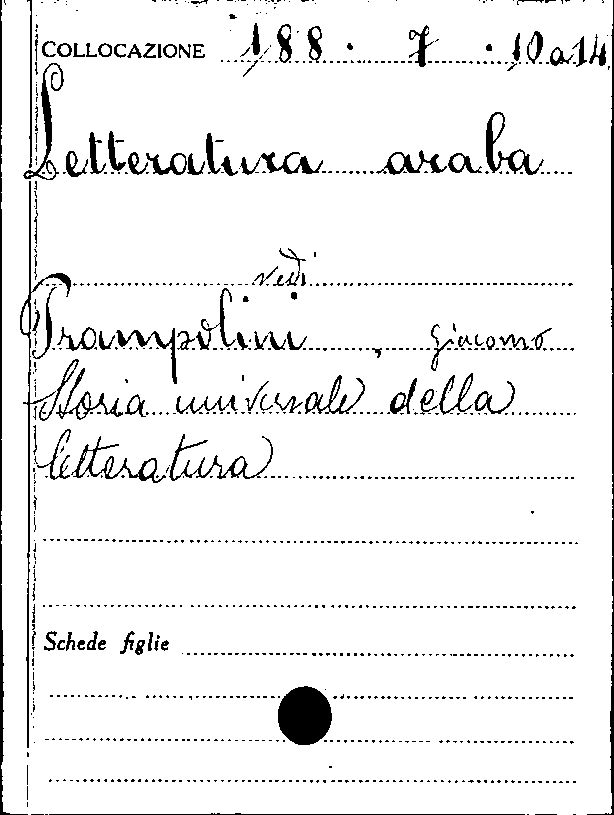 COLLOCAZIONE 188 . 7 . 10 a 14
Letteratura araba
vedi
Prampolini, Giacomo
Storia universale della
letteratura
Schede figlie